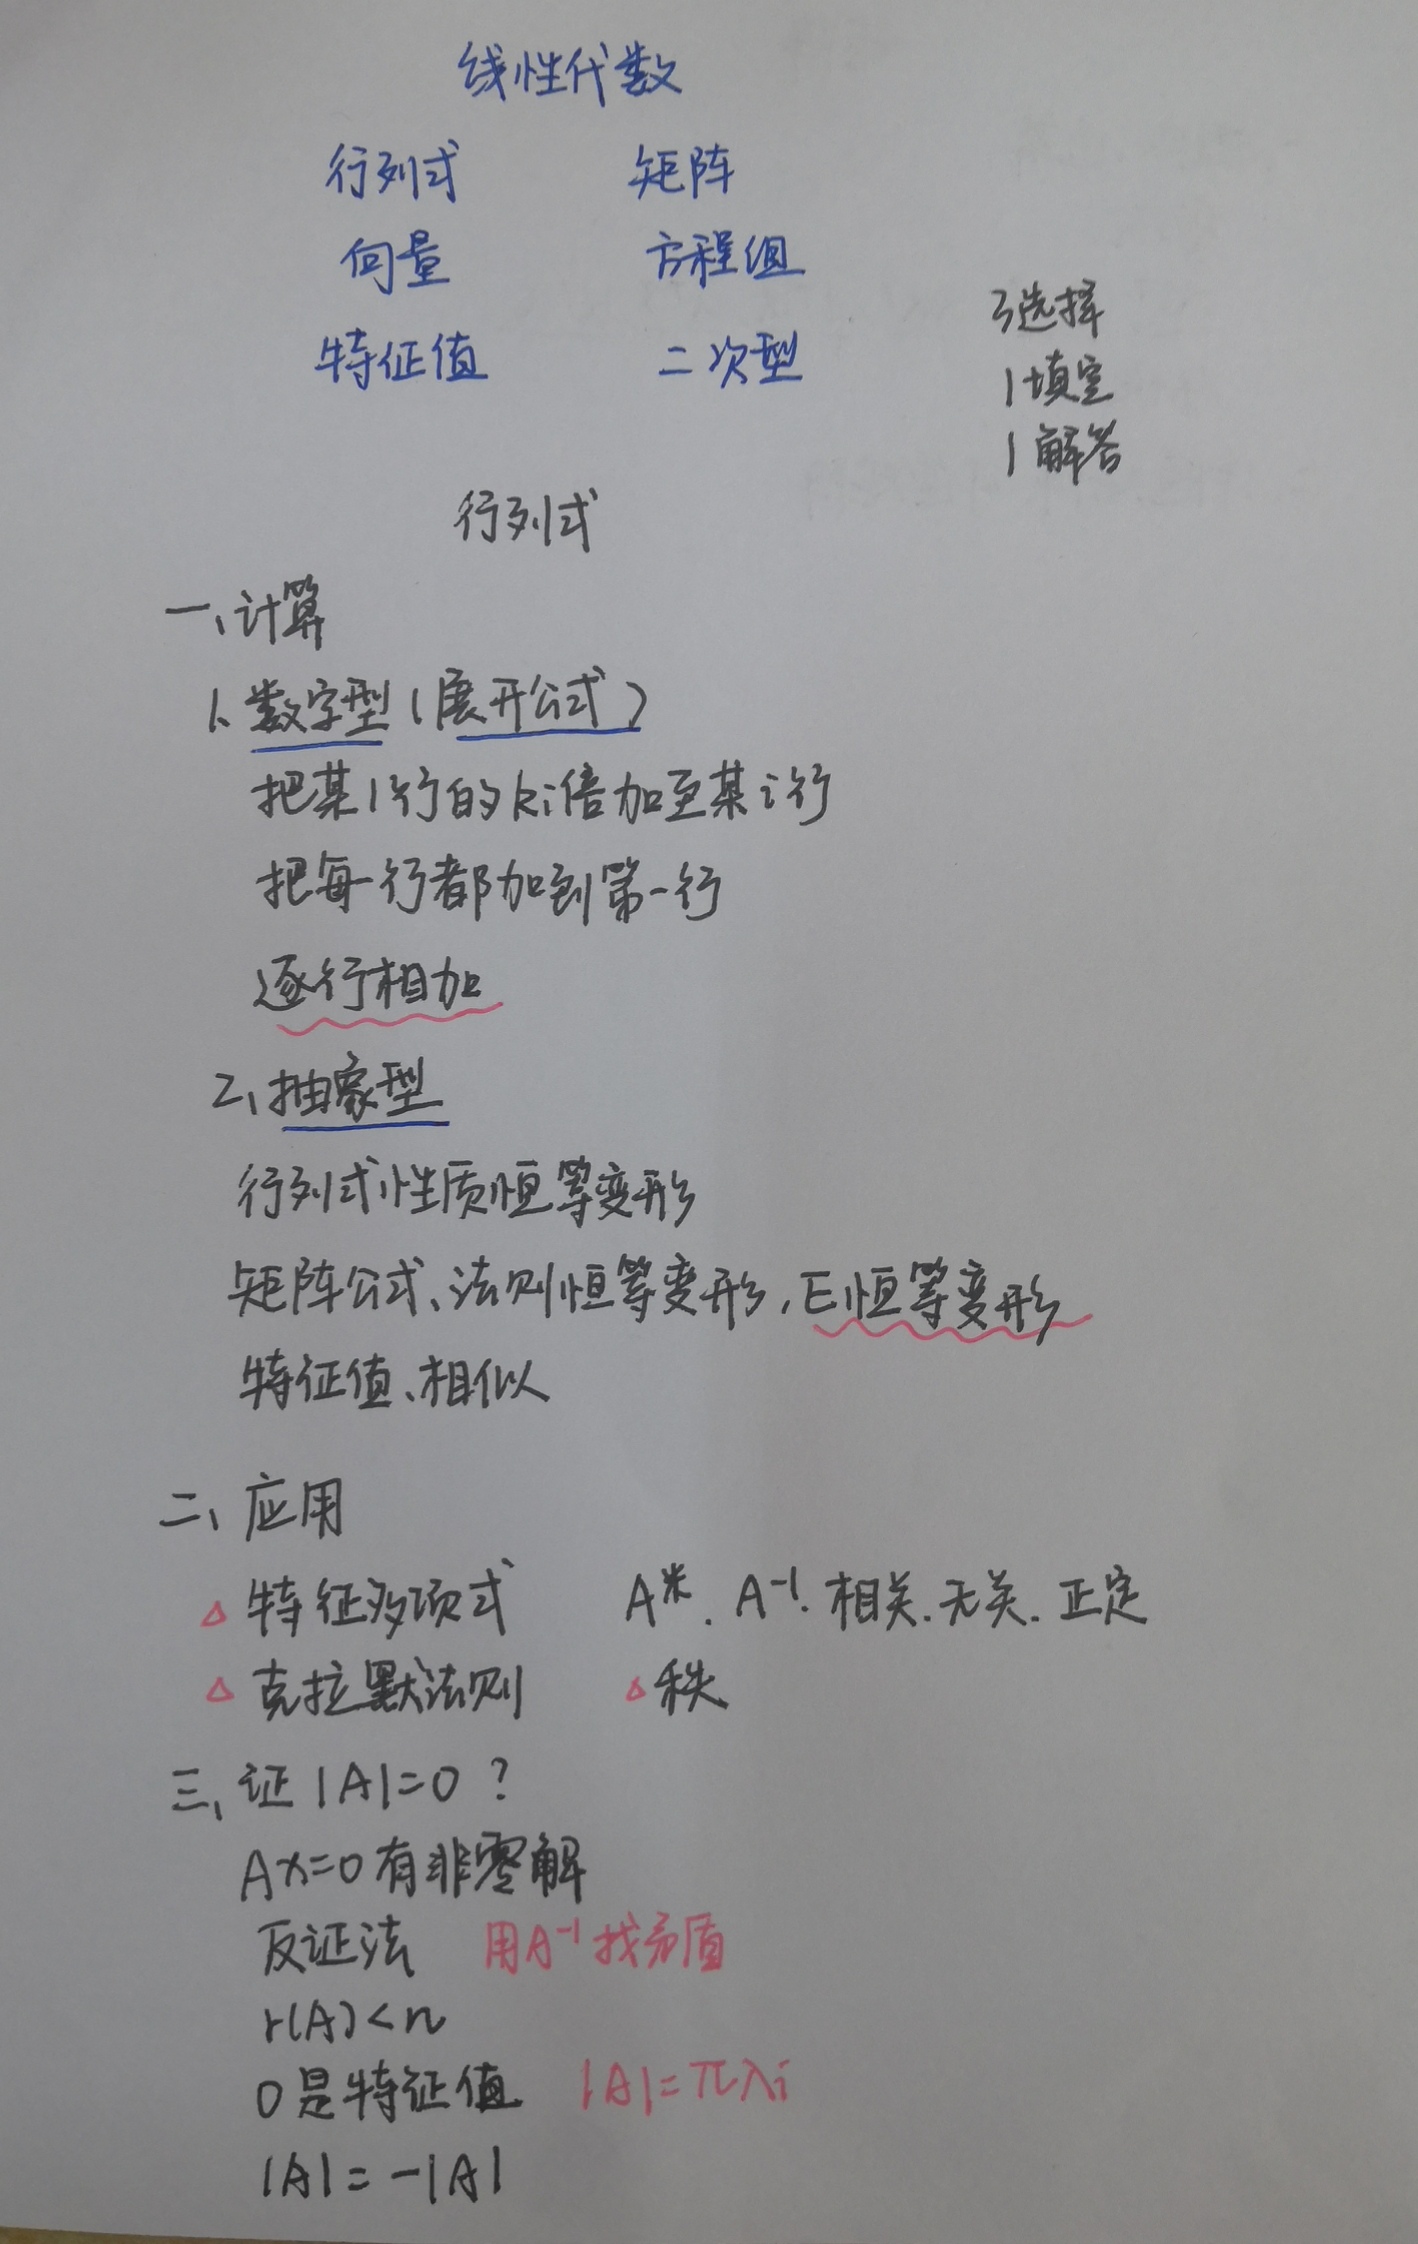 线性代数
行列式 矩阵
向量 方程组
特征值 二次型
3选择
1填空
1解答
行列式
一、计算
1、数字型(展开公式)
把某1行的ki倍加至某i行
把每一行都加到第一行
逐行相加
2、抽象型
行列式性质恒等变形
矩阵公式、法则恒等变形,E恒等变形
特征值、相似
二、应用
△ 特征多项式 A*. A⁻¹. 相关. 无关. 正定
△ 克拉默法则 △ 秩
三、证|A|=0?
Ax=0有非零解
反证法 用A⁻¹找矛盾
r(A)<n
0是特征值 |A|=πλi
|A|=-|A|